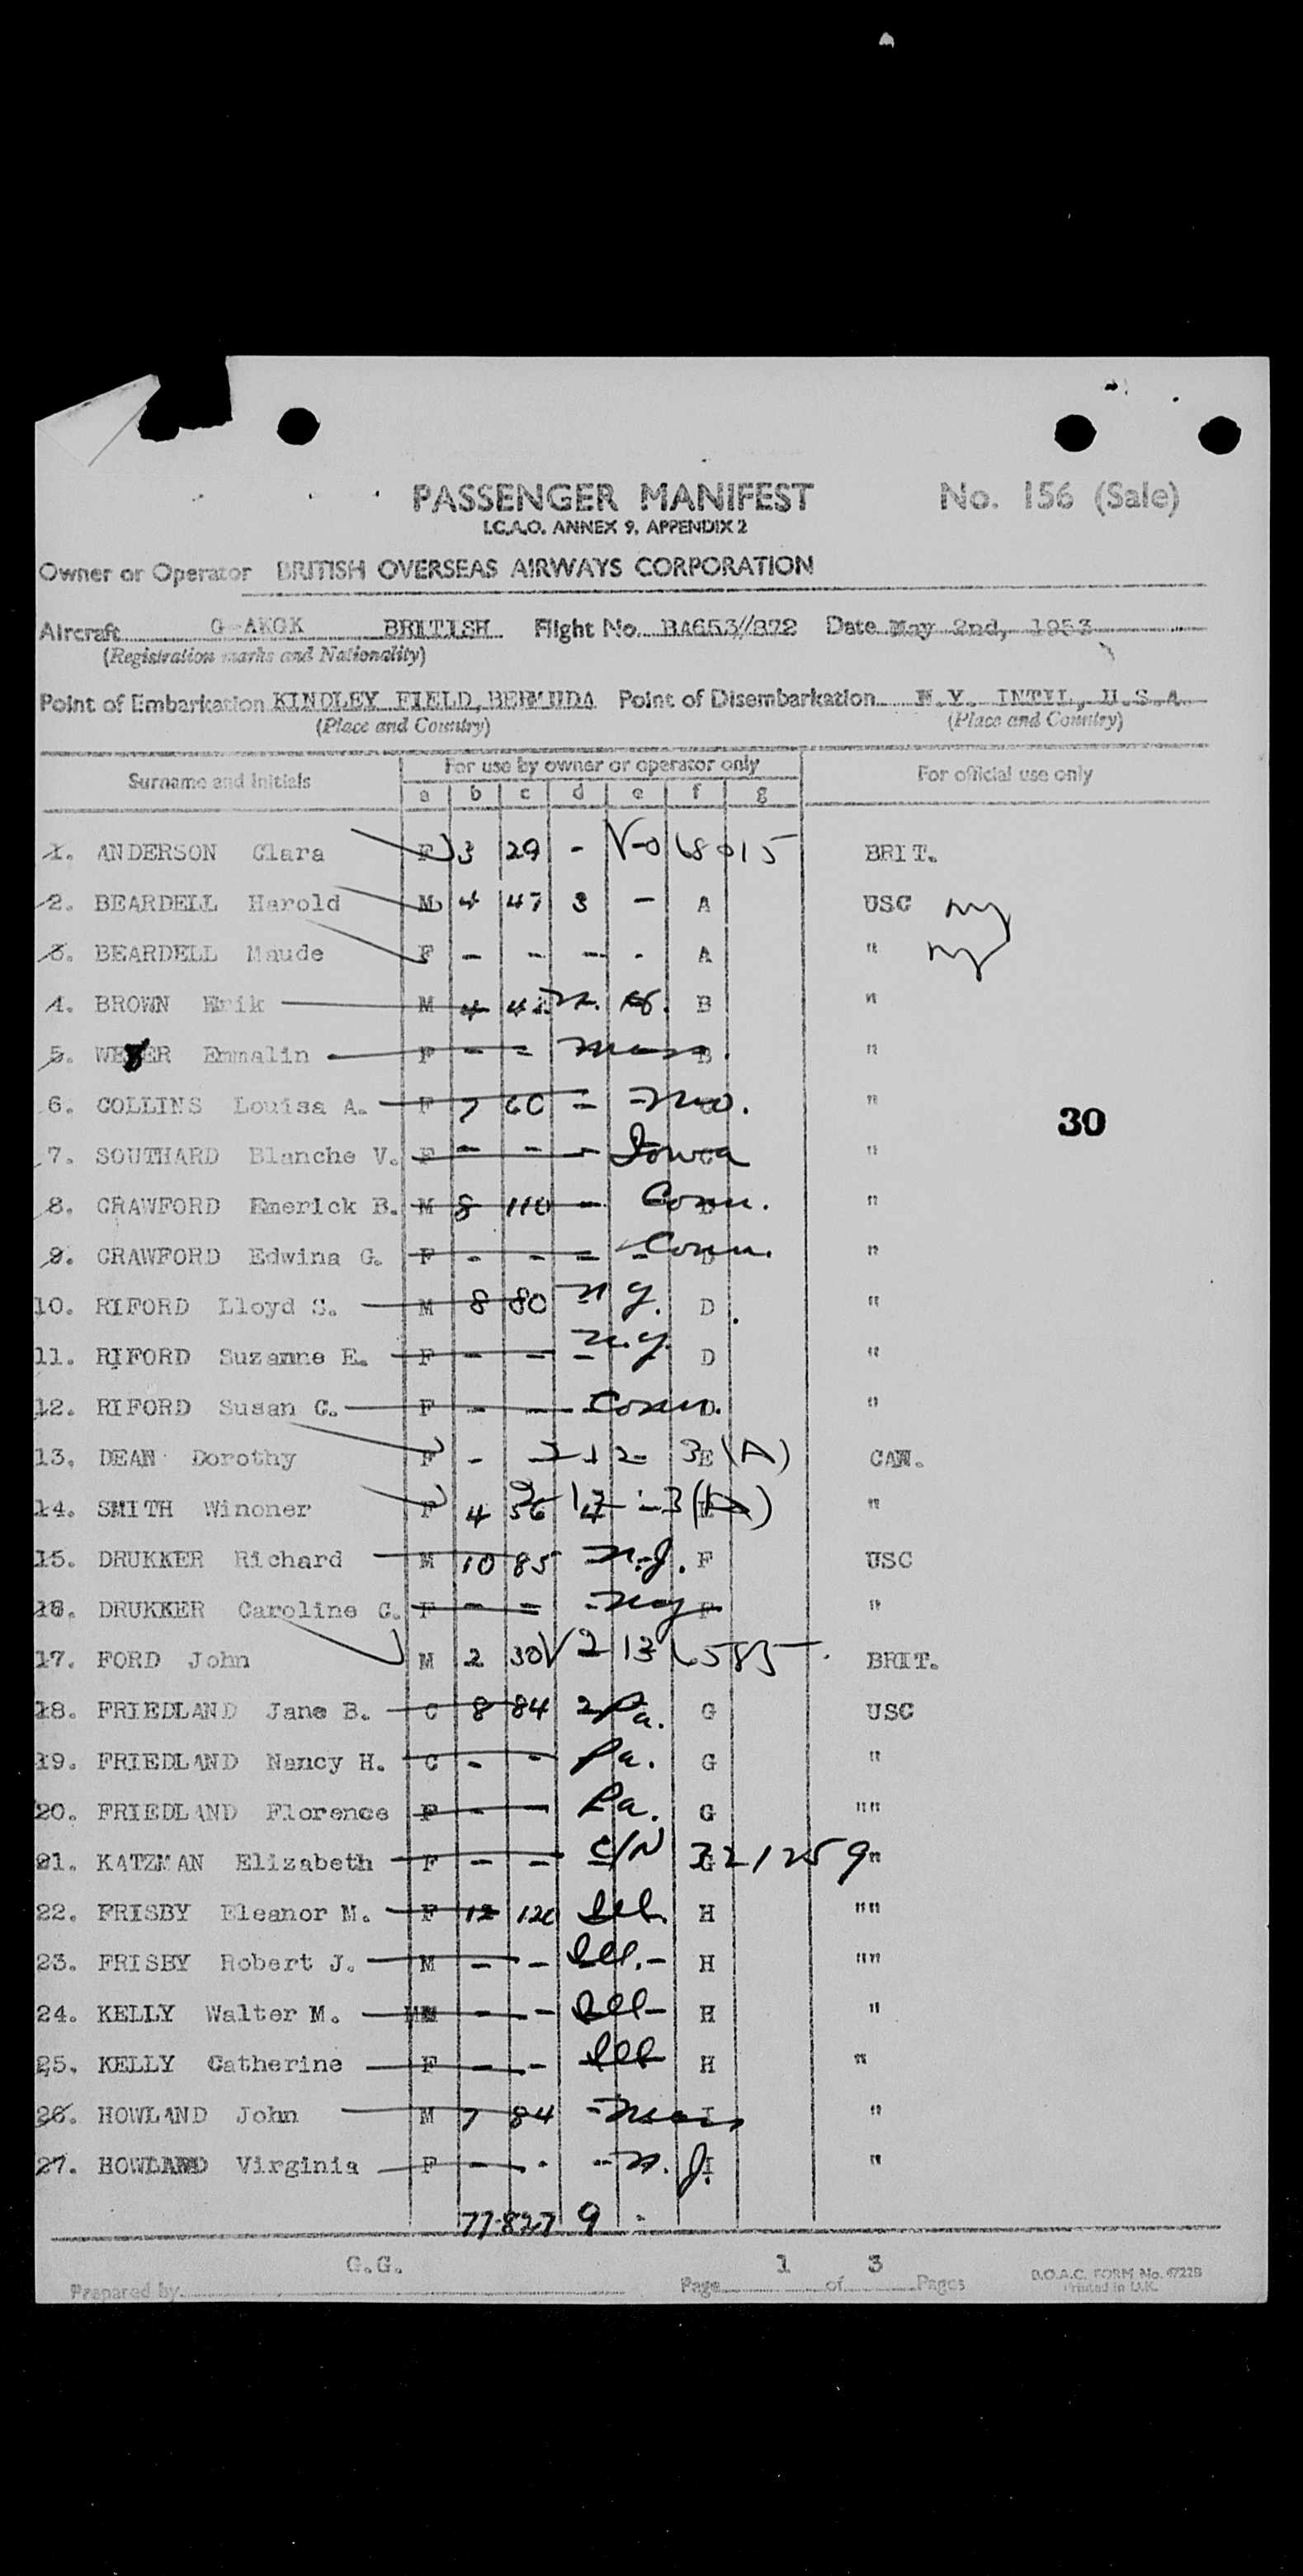 PASSENGER MANIFEST No. 156 (Sale)
I.C.A.O. ANNEX 9, APPENDIX 2
Owner or Operator BRITISH OVERSEAS AIRWAYS CORPORATION
Aircraft G-AKGK BRITISH Flight No. BA653//872 Date May 2nd, 1953
(Registration marks and Nationality)
Point of Embarkation KINDLEY FIELD, BERMUDA Point of Disembarkation N.Y. INTIL, U.S.A.
(Place and Country) (Place and Country)
Surname and Initials For use by owner or operator only For official use only
a b c d e f g
1. ANDERSON Clara F 3 29 - V-0 68015 BRIT.
2. BEARDELL Harold M 4 47 3 - A USC NY
3. BEARDELL Maude F - - - - A " NY
4. BROWN Erik M 4 B "
5. WE ER Emmalin F - - Mass. B "
6. COLLINS Louisa A. F 7 60 - Mo. "
30
7. SOUTHARD Blanche V. F - - - Iowa "
8. CRAWFORD Emerick B. M 8 110 - Conn. D "
9. CRAWFORD Edwina G. F - - - - Conn. D "
10. RIFORD Lloyd S. M 8 80 N.Y. D "
11. RIFORD Suzanne E. F - - - N.Y. D "
12. RIFORD Susan C. F - - - Conn. D "
13. DEAN Dorothy F - 212- 3 E (A) CAN.
14. SMITH Winoner F 4 56 4 212-3(A) "
15. DRUKKER Richard M 10 85 N.J. F USC
16. DRUKKER Caroline C. F - - - F "
17. FORD John M 2 30 V 213 6585 BRIT.
18. FRIEDLAND Jane B. C 8 84 2 Pa. G USC
19. FRIEDLAND Nancy H. C - - Pa. G "
20. FRIEDLAND Florence F - - Pa. G ""
21. KATZMAN Elizabeth F - - C/N G 321259 "
22. FRISBY Eleanor M. F 12 120 Ill. H ""
23. FRISBY Robert J. M - - Ill. - H ""
24. KELLY Walter M. M - - Ill - H "
25. KELLY Catherine F - - Ill H "
26. HOWLAND John M 7 84 - Mass I "
27. HOWLAND Virginia F - - - N.J. I "
77 827 9
Prepared by G.G. Page 1 of 3 Pages B.O.A.C. FORM No. 4722B
Printed in U.K.